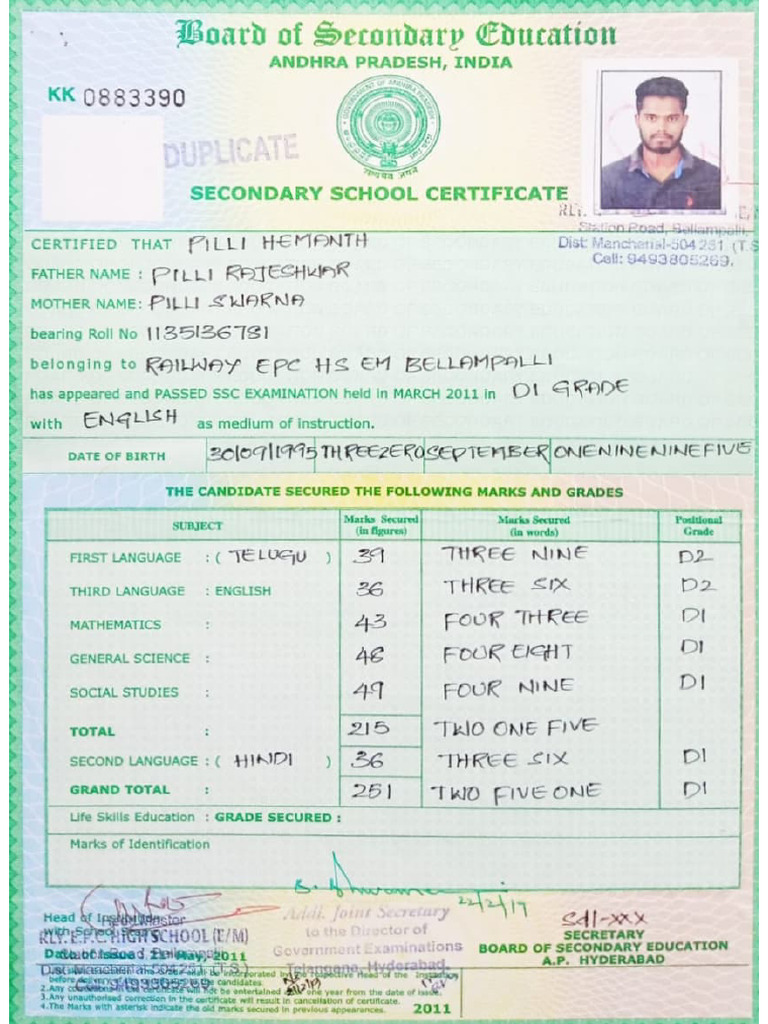 Board of Secondary Education
ANDHRA PRADESH, INDIA
KK 0883390
DUPLICATE
SECONDARY SCHOOL CERTIFICATE
Station Road, Bellampalli,
Dist: Mancherial-504251 (T.S
Cell: 9493805269.
CERTIFIED THAT PILLI HEMANTH
FATHER NAME : PILLI RAJESHWAR
MOTHER NAME: PILLI SWARNA
bearing Roll No 1135136781
belonging to RAILWAY EPC HS EM BELLAMPALLI
has appeared and PASSED SSC EXAMINATION held in MARCH 2011 in D1 GRADE
with ENGLISH as medium of instruction.
DATE OF BIRTH 30/09/1995 THREEZERO SEPTEMBER ONENINENINEFIVE
THE CANDIDATE SECURED THE FOLLOWING MARKS AND GRADES
SUBJECT Marks Secured (in figures) Marks Secured (in words) Positional Grade
FIRST LANGUAGE : ( TELUGU ) 39 THREE NINE D2
THIRD LANGUAGE : ENGLISH 36 THREE SIX D2
MATHEMATICS : 43 FOUR THREE D1
GENERAL SCIENCE : 48 FOUR EIGHT D1
SOCIAL STUDIES : 49 FOUR NINE D1
TOTAL : 215 TWO ONE FIVE
SECOND LANGUAGE : ( HINDI ) 36 THREE SIX D1
GRAND TOTAL : 251 TWO FIVE ONE D1
Life Skills Education : GRADE SECURED :
Marks of Identification
22/2/19
Addl. Joint Secretary
to the Director of
Government Examinations
Telangana, Hyderabad.
Head of Institution
with School
RLY. E.P.C. HIGH SCHOOL (E/M)
Date of Issue : May, 2011
9493805269
Sd/-xxx
SECRETARY
BOARD OF SECONDARY EDUCATION
A.P. HYDERABAD
3.Any unauthorised correction in the certificate will result in cancellation of certificate.
4.The Marks with asterisk indicate the old marks secured in previous appearances.
2011